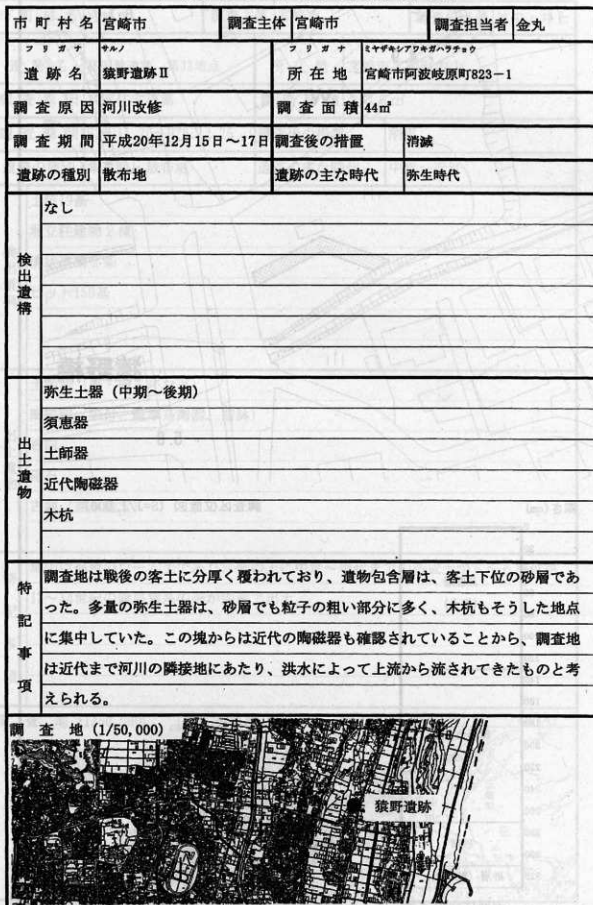 市町村名 宮崎市 調査主体 宮崎市 調査担当者 金丸
フリガナ サルノ フリガナ ミヤザキシアワキガハラチョウ
遺跡名 猿野遺跡Ⅱ 所在地 宮崎市阿波岐原町823-1
調査原因 河川改修 調査面積 44㎡
調査期間 平成20年12月15日~17日 調査後の措置 消滅
遺跡の種別 散布地 遺跡の主な時代 弥生時代
検出遺構
なし
出土遺物
弥生土器(中期~後期)
須恵器
土師器
近代陶磁器
木杭
特記事項
調査地は戦後の客土に分厚く覆われており、遺物包含層は、客土下位の砂層であ
った。多量の弥生土器は、砂層でも粒子の粗い部分に多く、木杭もそうした地点
に集中していた。この塊からは近代の陶磁器も確認されていることから、調査地
は近代まで河川の隣接地にあたり、洪水によって上流から流されてきたものと考
えられる。
調査地(1/50,000)
猿野遺跡